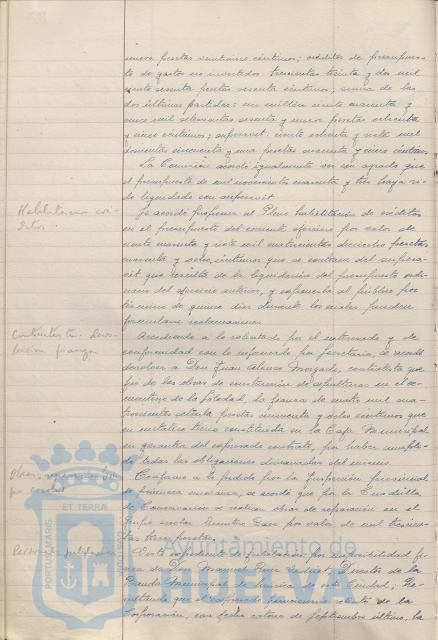 nueve pesetas veintinueve céntimos; créditos de presupues-
to de gastos no invertidos: trescientas treinta y dos mil
ciento sesenta pesetas sesenta céntimos; suma de las
dos últimas partidas: un millón ciento cuarenta y
once mil setecientas sesenta y nueve pesetas ochenta
y cinco céntimos; superavit: ciento ochenta y siete mil
doscientas cincuenta y una pesetas cuarenta y cinco céntimos.
La Comisión acordó igualmente ver con agrado que
el presupuesto de mil novecientos cuarenta y tres haya si-
do liquidado con superavit.
Habilitación cré-
ditos.
Se acordó proponer al Pleno habilitación de créditos
en el presupuesto del corriente ejercicio por valor de
ciento cuarenta y siete mil cuatrocientas dieciocho pesetas
cuarenta y céntimos que se contraen del supera-
vit que resulta de la liquidación del presupuesto ordi-
nario del ejercicio anterior, y exponerla al público por
término de quince días durante los cuales pueden
formularse reclamaciones.
Contratista. Devo-
lución fianza
Accediendo a lo solicitado por el interesado y de
conformidad con lo informado por Secretaría, se acordó
devolver a Don Juan Morgado, contratista que
fué de las obras de construcción de sepulturas en el ce-
menterio de la Soledad, la fianza de cuatro mil cua-
trocientas setenta pesetas cincuenta y ocho céntimos que
en metálico tenía constituida en la Caja Municipal
en garantía del expresado contrato, por haber cumpli-
do todas las obligaciones dimanadas del mismo.
Obras reparación
escolar
Conforme a lo pedido por la Inspección provincial
de primera enseñanza, se acordó que por la Cuadrilla
de Conservación se realicen obras de reparación en el
Grupo escolar por valor de mil trescien-
tas pesetas.
Personal jubilación
Visto expediente de jubilación por imposibilidad fí-
sica de Don Manuel Director de la
Banda Municipal de Música de esta Ciudad; Re-
sultando que el expresado funcionario solicitó de la
Corporación, con fecha catorce de Septiembre último, la
PORTUS MARIS
ET TERRAE
Ayuntamiento de
HUELVA